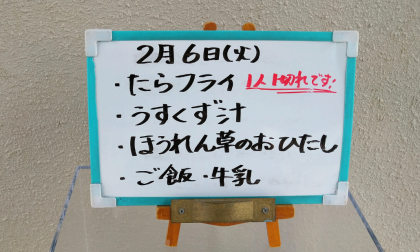 2月6日(火)
・たらフライ 1人1切れです!
・うすくず汁
・ほうれん草のおひたし
・ご飯・牛乳